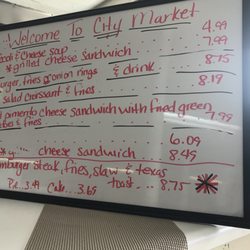 Welcome To City Market
& Cheese Sap ... 4.99
* grilled cheese sandwich ... 7.99
urger, fries or onion rings & drink ... 8.75
salad Croissant & Fries ... 8.19
pimento cheese sandwich with fried green
& fries ... 7.99
6.09
* cheese sandwich ... 8.49
mburger steak, fries, slaw & texas
toast ... 8.75
Pie .. 3.49 Cake ... 3.69